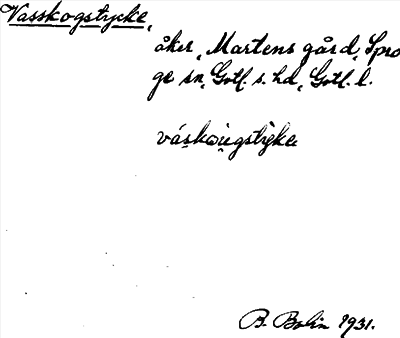 Vasskogstycke,
åker, Martens gård, Spro
ge sn, Gotl. s. hd, Gotl. l.
váskougstỳke
B. Bolin 1931.